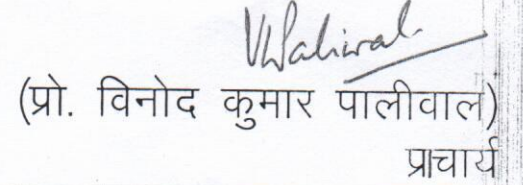 VKPaliwal
(प्रो. विनोद कुमार पालीवाल)
प्राचार्य